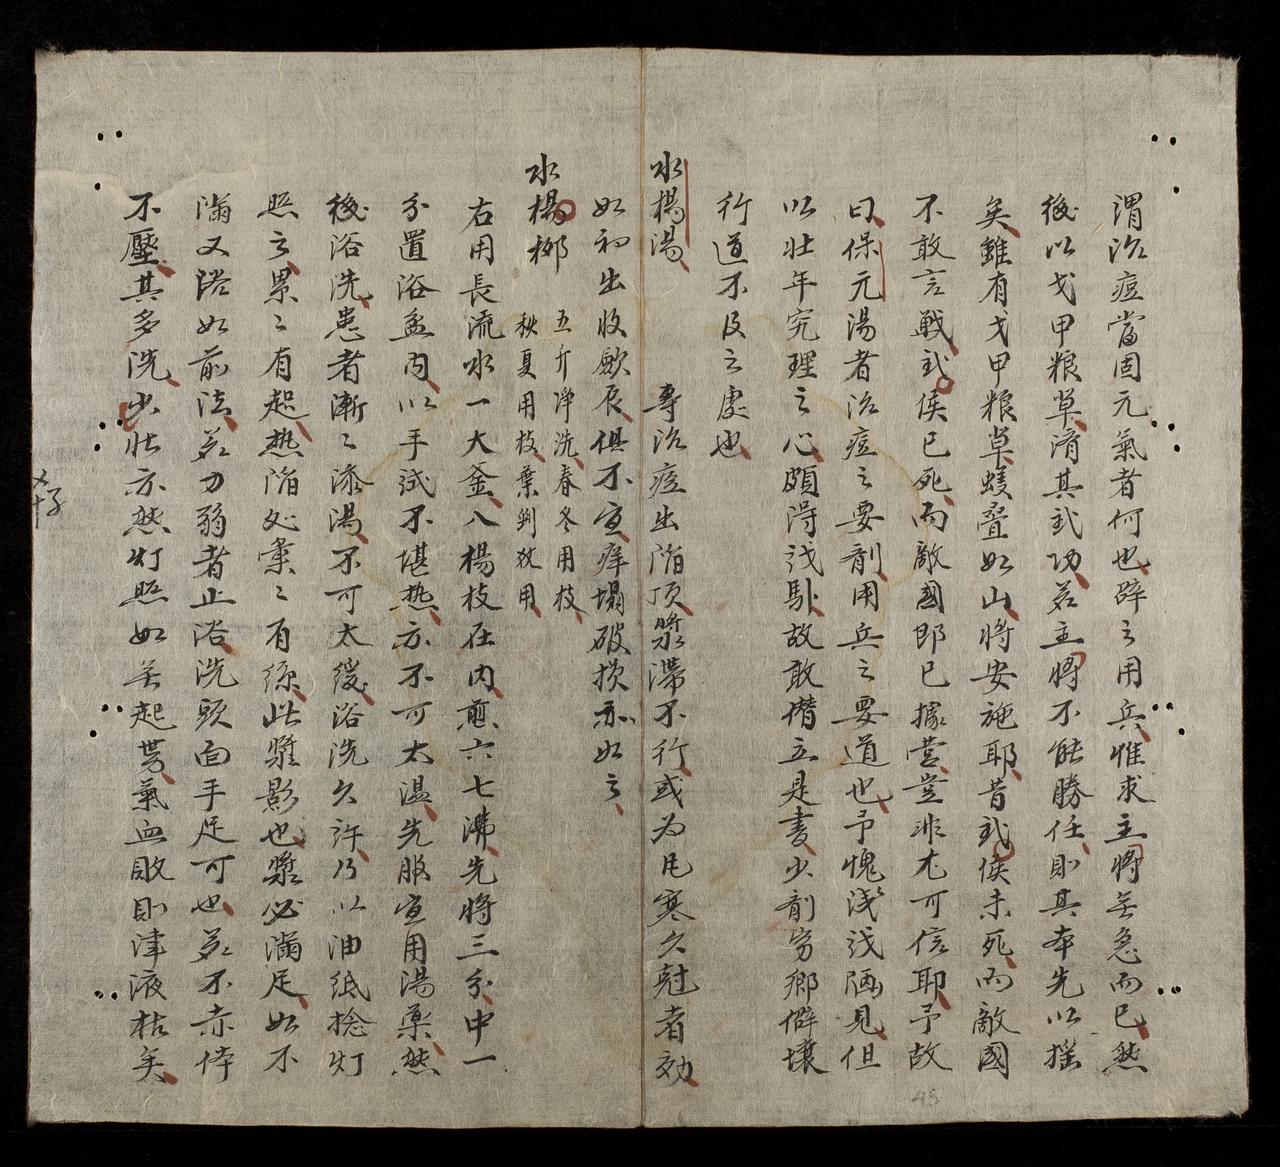 謂治痘當固元氣者何也辟之用兵惟求主將無急而已然
後以戈甲粮草済其武功若主將不能勝任則其本先以摇
矣雖有戈甲粮草蟻叠如山將安施耶昔武侯未死而敵國
不敢言戦武侯已死而敵國即已據営豈非尤可信耶予故
曰保元湯者治痘之要劑用兵之要道也予愧淺淺陋見但
以壮年究理之心頗得浅馱故敢僣立是書少劑窮鄉僻壤
行道不及之處也
水楊湯 專治痘出陥頂漿滯不行或为風寒久尅者効
如初出收歛辰俱不宜痒塌破损亦如之
水楊栁 五斤淨洗春冬用枝
秋夏用枝葉剉碎用
右用長流水一大釜八楊枝在内煎六七沸先將三分中一
分置浴盆内以手試不堪热亦不可太温先服宣用湯藥然
後浴洗患者漸〻添湯不可太緩浴洗久許乃以油紙捻灯
照之累〻有起热陥处業〻有線此漿影也漿必滿足如不
滿又浴如前法若力弱者止浴洗頭面手足可也若不赤倖
不壓其多洗少壮亦然灯照如無起勢氣血敗則津液枯矣
45